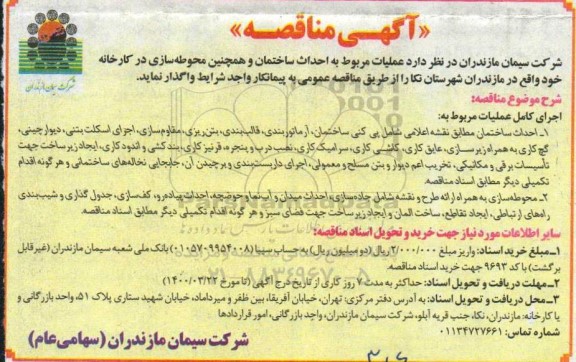 «آگهی مناقصه»
شرکت سیمان مازندران
شرکت سیمان مازندران در نظر دارد عملیات مربوط به احداث ساختمان و همچنین محوطه‌سازی در کارخانه
خود واقع در مازندران شهرستان نکا را از طریق مناقصه عمومی به پیمانکار واجد شرایط واگذار نماید.
شرح موضوع مناقصه:
اجرای کامل عملیات مربوط به:
۱ـ احداث ساختمان مطابق نقشه اعلامی شامل پی کنی ساختمان، آرماتوربندی، قالب‌بندی، بتن‌ریزی، مقاوم‌سازی، اجرای اسکلت بتنی، دیوارچینی،
گچ کاری به همراه زیرسازی، عایق کاری، کاشی کاری، سرامیک کاری، نصب درب و پنجره، قرنیز کاری، بندکشی و اندود کاری، ایجاد زیرساخت جهت
تأسیسات برقی و مکانیکی، تخریب اعم دیوار و بتن مسلح و معمولی، اجرای داربست‌بندی و برچیدن آن، جابجایی نخاله‌های ساختمانی و هر گونه اقدام
تکمیلی دیگر مطابق اسناد مناقصه.
۲ـ محوطه‌سازی به همراه ارائه طرح و نقشه شامل جاده‌سازی، احداث میدان و آب‌نما، حوضچه، احداث پیاده‌رو، کف‌سازی، جدول گذاری و شیب‌بندی
راه‌های ارتباطی، ایجاد تقاطع، ساخت المان و ایجاد زیرساخت جهت فضای سبز و هر گونه اقدام تکمیلی دیگر مطابق اسناد مناقصه.
سایر اطلاعات مورد نیاز جهت خرید و تحویل اسناد مناقصه:
۱ـ مبلغ خرید اسناد: واریز مبلغ ۲/۰۰۰/۰۰۰ ریال (دو میلیون ریال) به حساب سیبا (۰۱۰۵۷۰۹۹۵۴۰۰۸) بانک ملی شعبه سیمان مازندران (غیرقابل
برگشت) با کد ۹۶۹۳ جهت خرید اسناد مناقصه.
۲ـ مهلت دریافت و تحویل اسناد: حداکثر به مدت ۷ روز کاری از تاریخ درج آگهی (تا مورخ ۱۴۰۰/۳/۲۲)
۳ـ محل دریافت و تحویل اسناد: به آدرس دفتر مرکزی: تهران، خیابان آفریقا، بین ظفر و میرداماد، خیابان شهید ستاری پلاک ۵۱، واحد بازرگانی و
یا کارخانه: مازندران، نکا، جنب قریه آبلو، شرکت سیمان مازندران، واحد بازرگانی، امور قراردادها
شماره تماس: ۰۱۱۳۴۷۲۷۶۶۱
شرکت سیمان مازندران (سهامی عام)